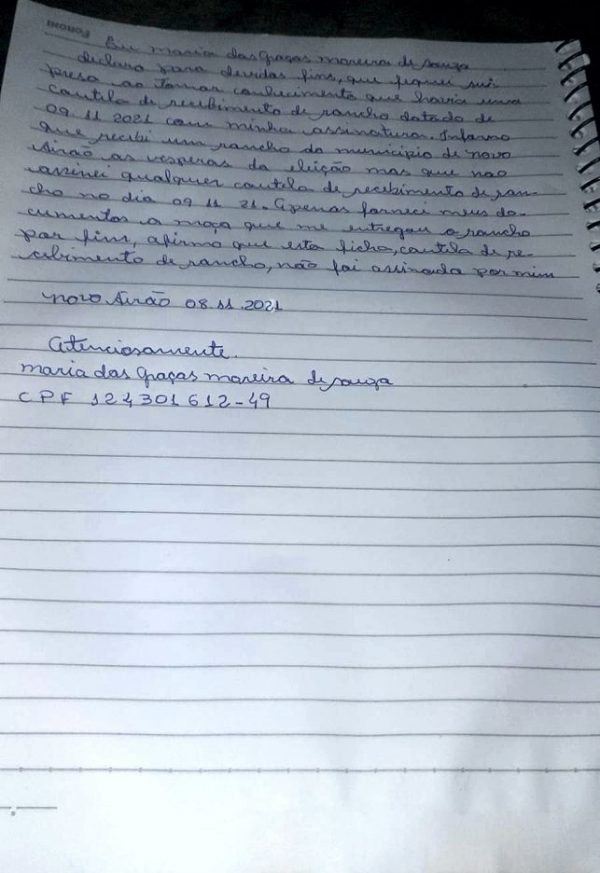 Foroni
Eu maria das Graças moreira de souza
declaro para devidas fins, que fiquei sur-
presa ao tomar conhecimento que havia uma
cautila de recebimento de rancho datado de
09.11 2021 com minha assinatura. Informo
que recibi um rancho do municipio de novo
Airão as vesperas da eleição mas que nao
assinei qualquer cautila de recebimento de ran-
cho no dia 09 11 21. Apenas forneci meus do-
cumentos a moça que me entregou o rancho
por fim, afirmo que esta ficha, cautila de re-
cebimento de rancho, não foi assinada por mim
novo Airão 08.11.2021
Atenciosamente.
maria das Graças moreira de souza
CPF 124301612-49